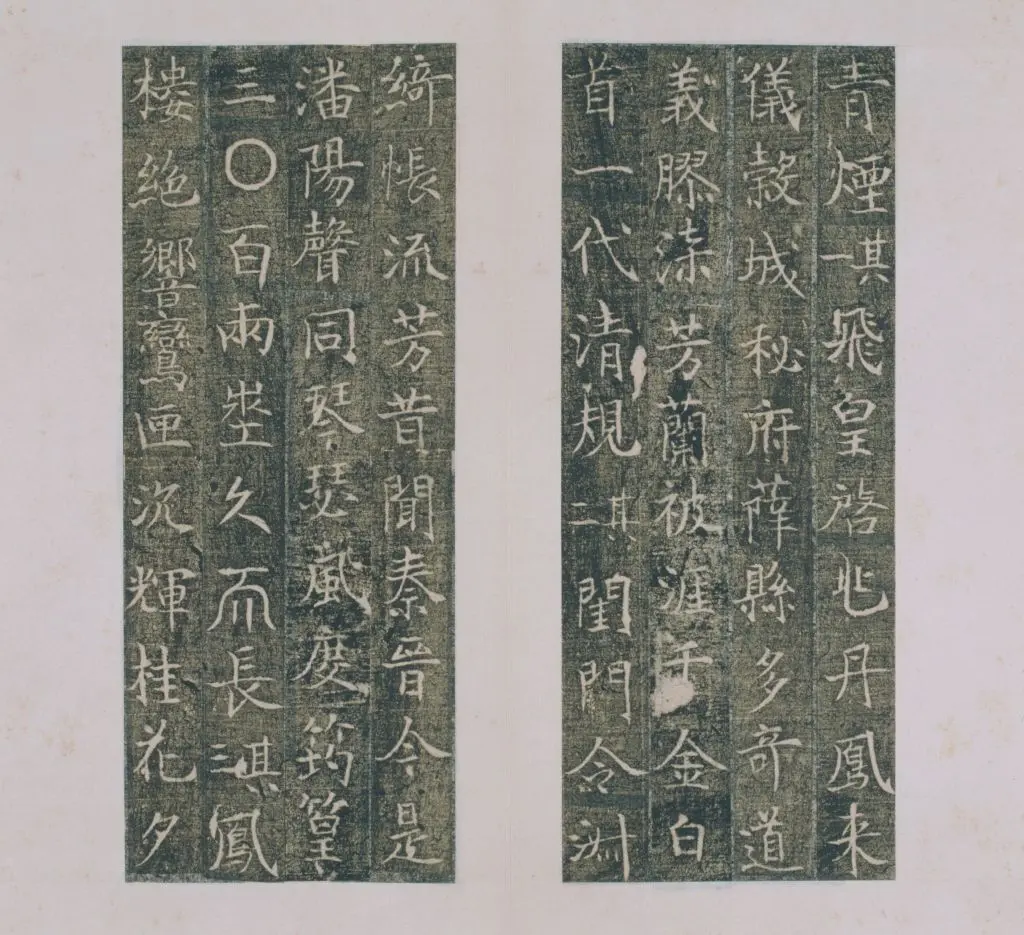 青煙其一飛皇啓兆丹鳳来
儀穀城秘府薛縣多奇道
義膠漆芳蘭被涯千金白
首一代清規其二閨門令淑
綺帳流芳昔聞秦晉今是
潘陽聲同琴瑟風度筠篁
三〇百兩埊久而長其三鳳
樓絶響鸞匣沉輝桂花夕